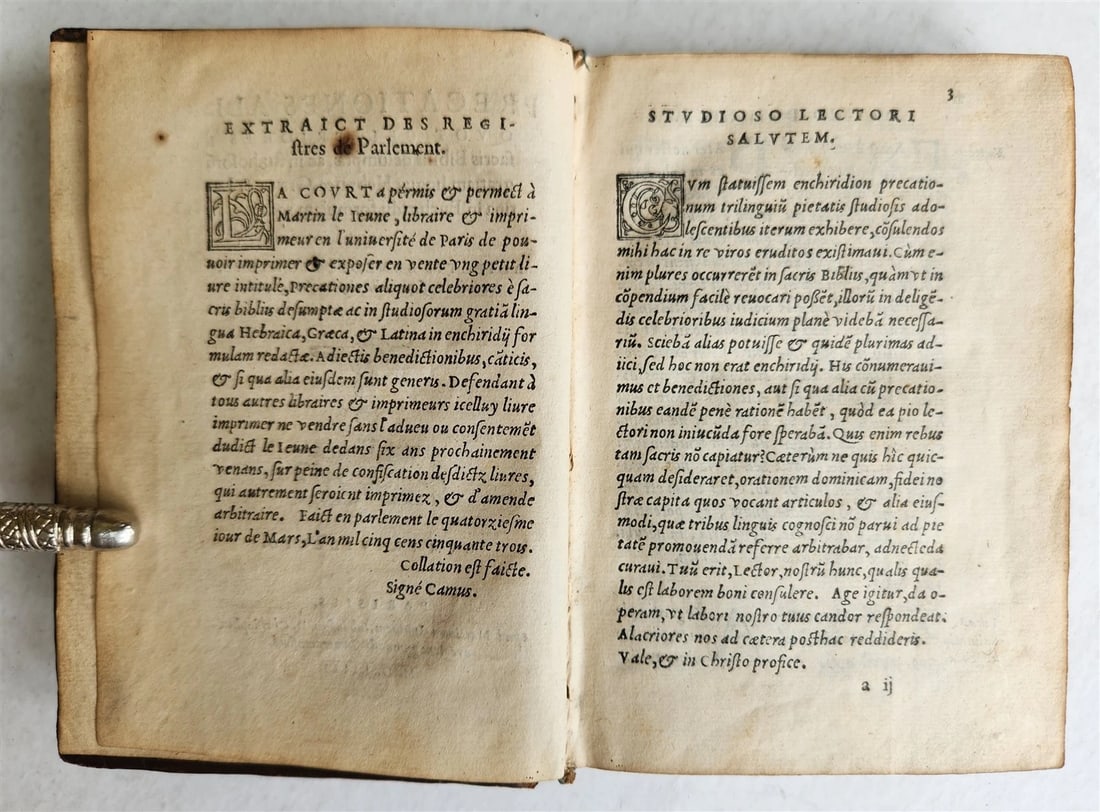 EXTRAICT DES REGI-
ſtres de Parlement.
LA COVRT a pérmis & permect à
Martin le Ieune, libraire & impri-
meur en l'uniuerſité de Paris de pou-
uoir imprimer & expoſer en vente vng petit li-
ure intitulè, Precationes aliquot celebriores è ſa-
cris bibliis deſumptæ ac in ſtudioſorum gratiā lin-
gua Hebraica, Græca, & Latina in enchiridij for
mulam redactæ. Adiectis benedictionibus, cāticis,
& ſi qua alia eiuſdem ſunt generis. Defendant à
tous autres libraires & imprimeurs icelluy liure
imprimer ne vendre ſans l'adueu ou conſentemēt
dudict le Ieune dedans ſix ans prochainement
venans, ſur peine de confiſcation deſdictz liures,
qui autrement ſeroient imprimez, & d'amende
arbitraire. Faict en parlement le quatorzieſme
iour de Mars, L'an mil cinq cens cinquante trois.
Collation eſt faicte.
Signé Camus.
3
STVDIOSO LECTORI
SALVTEM.
CVm ſtatuiſſem enchiridion precatio-
num trilinguiū pietatis ſtudioſis ado-
leſcentibus iterum exhibere, cōſulendos
mihi hac in re viros eruditos exiſtimaui. Cùm e-
nim plures occurrerēt in ſacris Bibliis, quàm vt in
cōpendium facilè reuocari poſſēt, illorū in deligē-
dis celebrioribus iudicium planè videbā neceſſa-
riū. Sciebā alias potuiſſe & quidē plurimas ad-
iici, ſed hoc non erat enchiridij. His cōnumeraui-
mus et benedictiones, aut ſi qua alia cū precatio-
nibus eandē penè rationē habēt, quòd ea pio le-
ctori non iniucūda fore ſperabā. Quis enim rebus
tam ſacris nō capiatur? Cæterùm ne quis hîc quic-
quam deſideraret, orationem dominicam, fidei no
ſtræ capita quos vocant articulos, & alia eiuſ-
modi, quæ tribus linguis cognoſci nō parui ad pie
tatē promouendā referre arbitrabar, adnectēda
curaui. Tuū erit, Lector, noſtrū hunc, qualis qua-
lis eſt laborem boni conſulere. Age igitur, da o-
peram, vt labori noſtro tuus candor reſpondeat.
Alacriores nos ad cætera poſthac reddideris.
Vale, & in Chriſto profice.
a ij